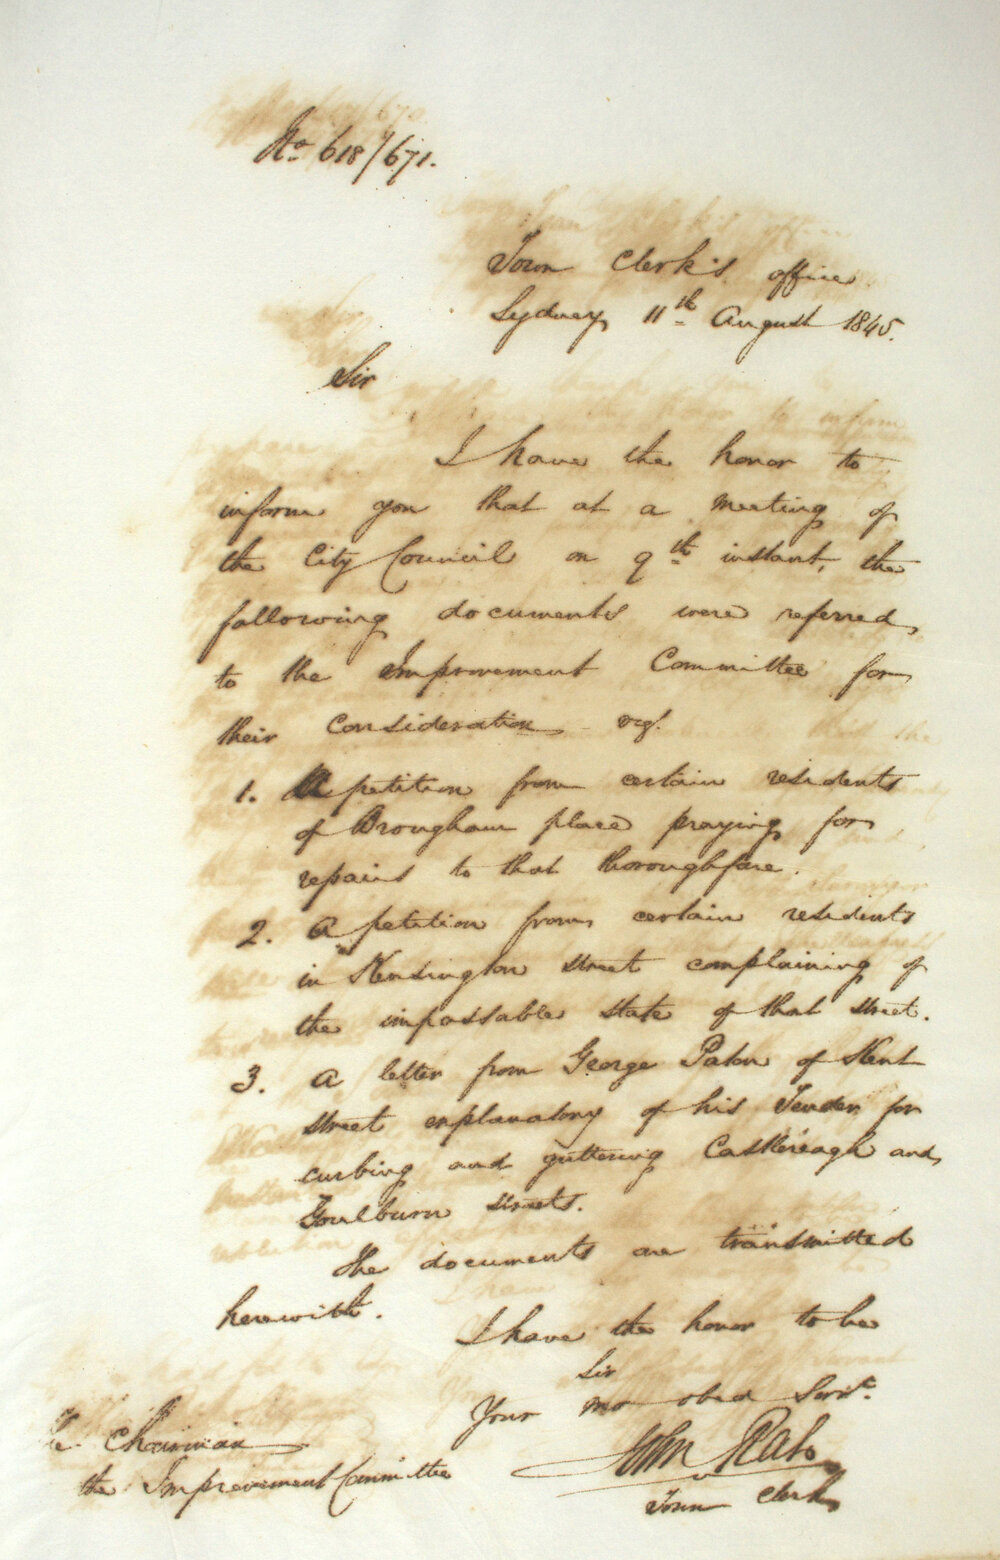 No 618/671.
Town Clerk's office
Sydney 11th August 1845.
Sir
I have the honor to
inform you that at a meeting of
the City Council on 9th instant, the
following documents were referred
to the Improvement Committee for
their consideration vizt.
1. A petition from certain residents
of Brougham place praying for
repairs to that thoroughfare.
2. A petition from certain residents
in Kensington street complaining of
the impassable state of that street.
3. A letter from George Paton of Kent
street explanatory of his Tender for
curbing and guttering Castlereagh and
Goulburn streets.
The documents are transmitted
herewith.
I have the honor to be
Sir
Your mo obed Servt.
John Rae
Town Clerk
The Chairman
the Improvement Committee